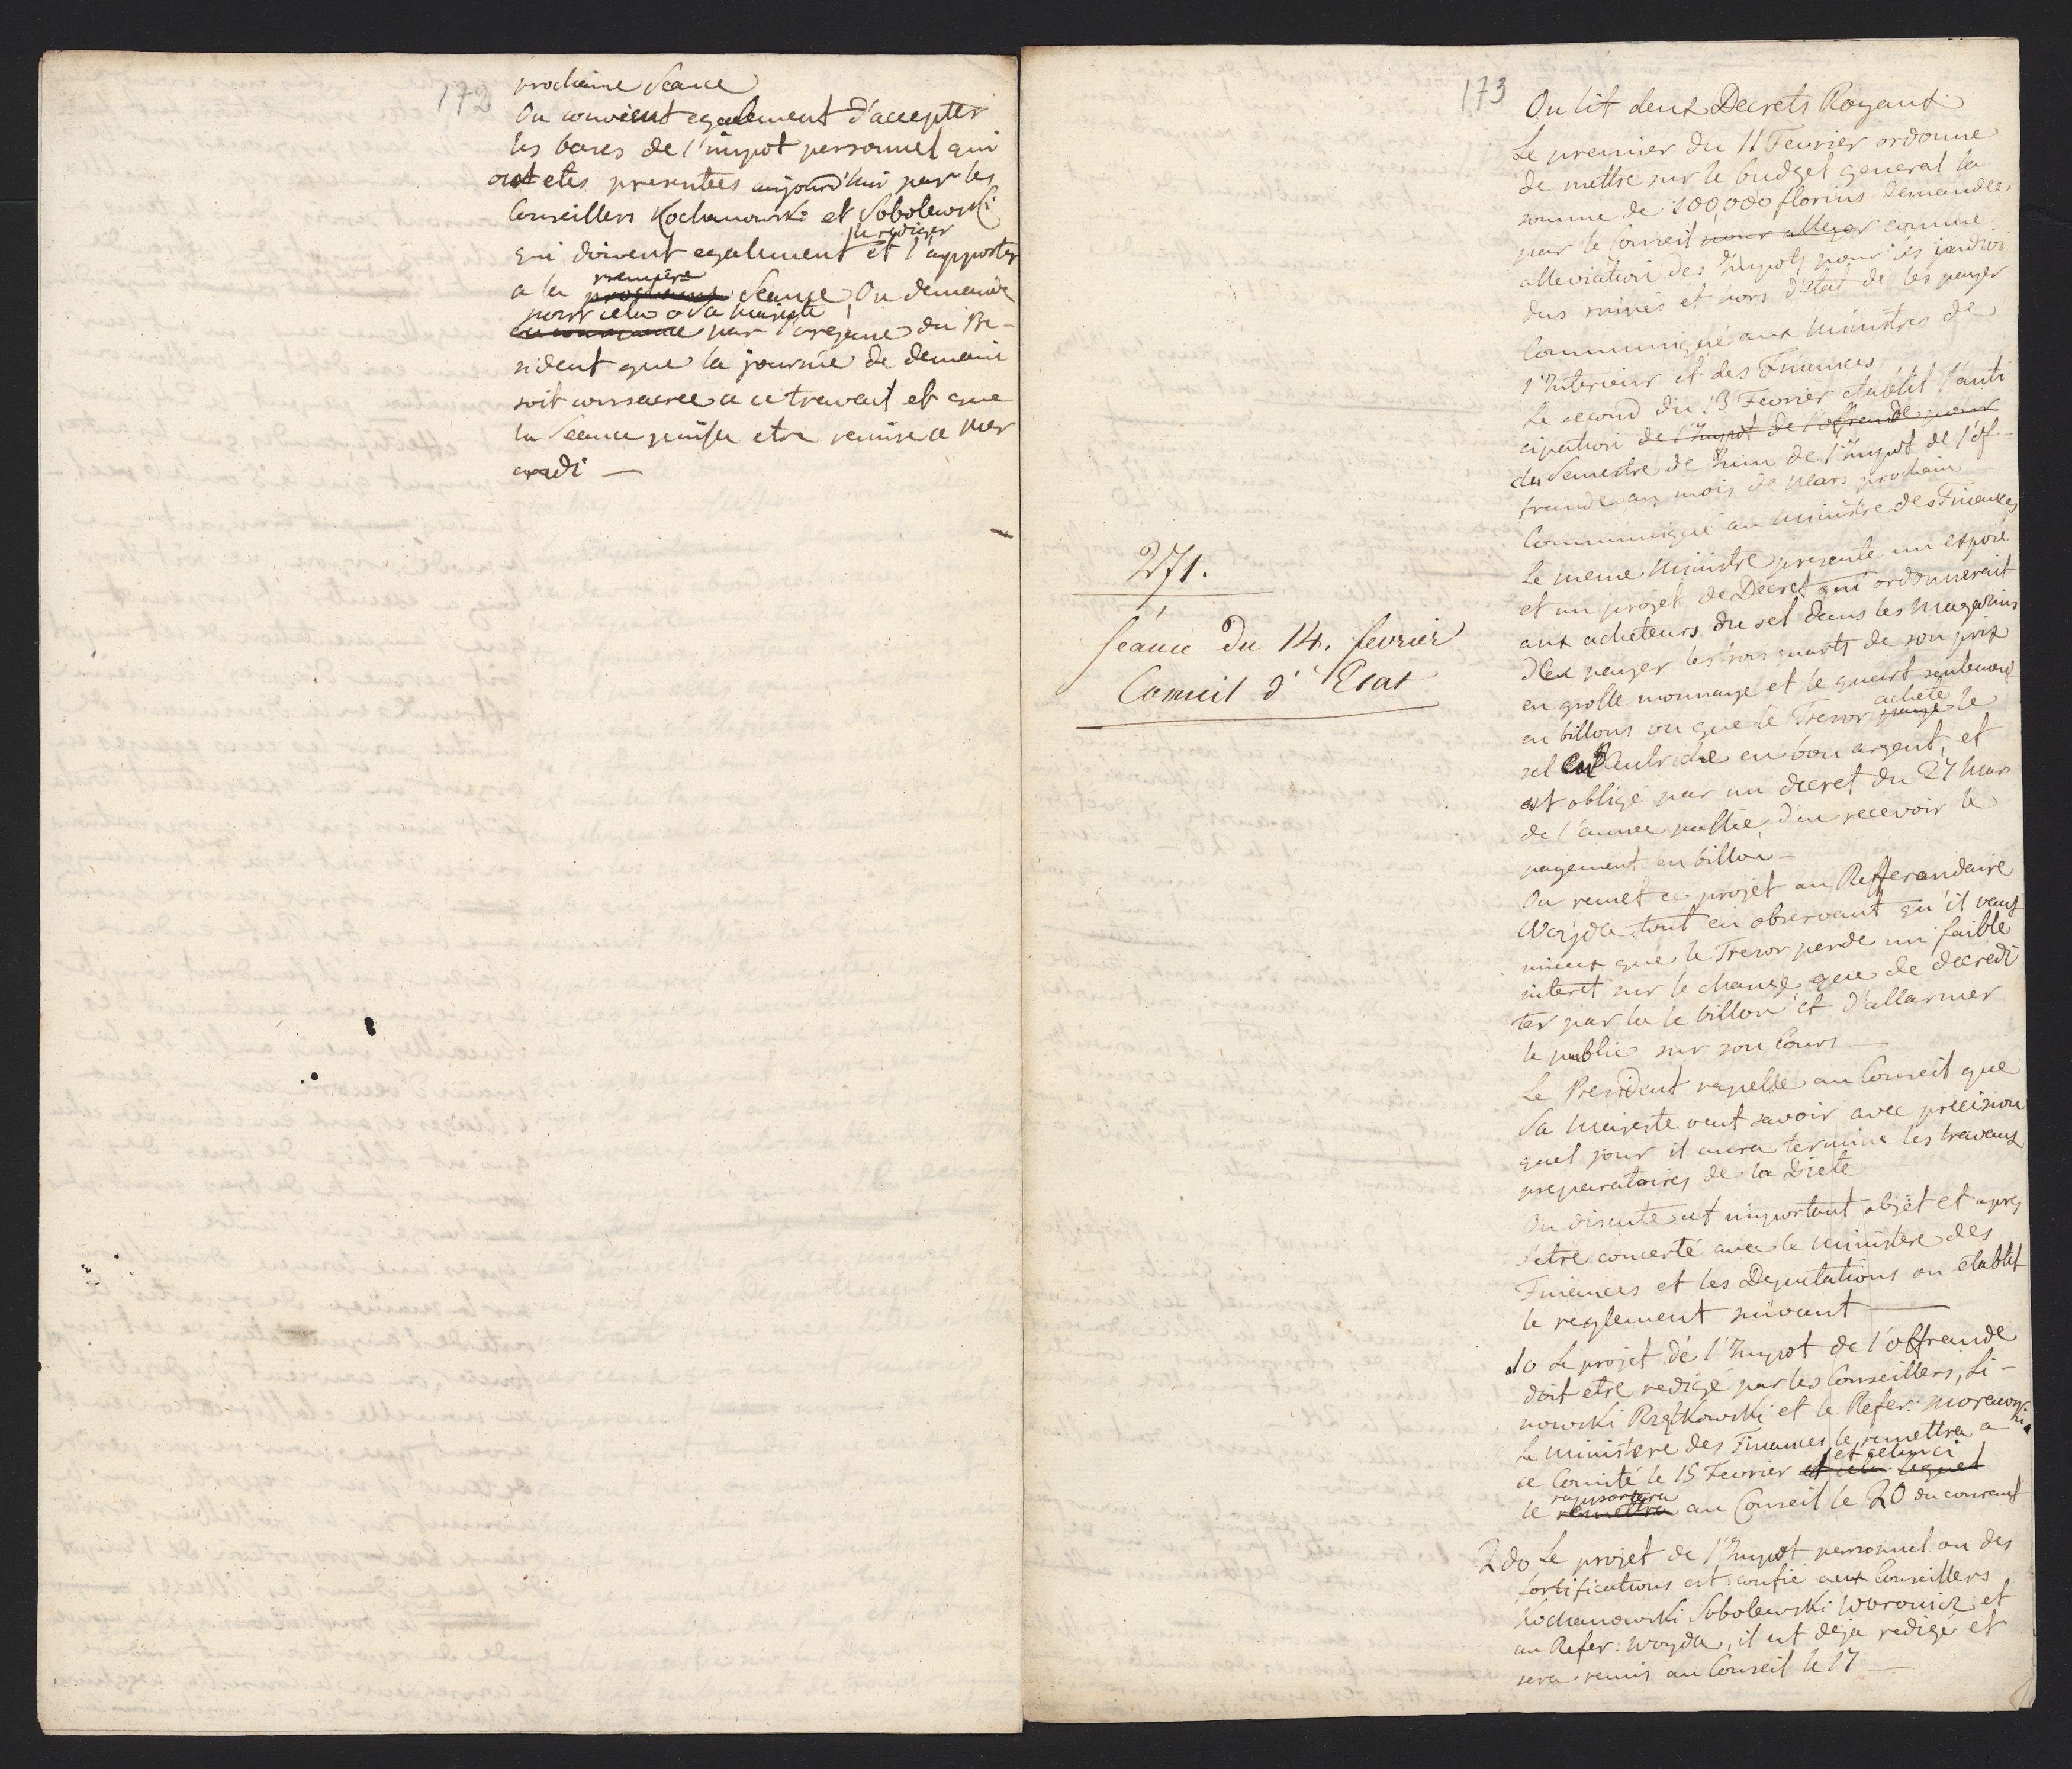 172
prochaine Seance
On convient egalement d'accepter
les bases de l'impot personnel qui
ont etés presentées aujourd'hui par les
Conseillers Kochanowski et Sobolewski
le rediger
qui doivent egalement et l'apporter
premiere
a la prochaine Seance, On demande
pour cela a Sa Majesté
en consequence par l'organe du Pre-
sident que la journée de demain
soit consacrée a ce travail et que
la Seance puisse etre remise a Mer
credi —
173
271.
Séance du 14. fevrier
Conseil d'Etat
On lit deux Decrets Royaux
Le premier du 11 Fevrier ordonne
de mettre sur le budget general la
somme de 100,000 florins demandée
par le Conseil pour alleger comme
alleviation des Impots pour les indivi
dus ruinés et hors d'etat de les payer
Communiqué aux Ministres de
l'Interieur et des Finances
Le second du 13 Fevrier etablit l'anti
cipation de l'Impot de l'offrande pour
du Semestre de Juin de l'Impot de l'of-
frande au mois de Mars prochain
Communiqué au Ministre des Finances
Le meme Ministre presente un exposé
et un projet de Decret qui ordonnerait
aux acheteurs du sel dans les Magasins
d'en payer les trois quarts de son prix
en grosse monnaye et le quart seulement
achete
en billons vu que le Tresor paye le
sel en Autriche en bon argent, et
est obligé par un decret du 27 Mars
de l'année passée d'en recevoir le
payement en billon —
On remet ce projet au Refferandaire
Woyda tout en observant qu'il vaut
mieux que le Tresor perde un faible
interet sur le change que de decredi
ter par la le billon et d'allarmer
le public sur son Cours —
Le President rapelle au Conseil que
Sa Majesté veut savoir avec precision
quel jour il aura terminé les travaux
preparatoires de la Diete
On discute cet important objet et apres
s'etre concerté avec le Ministere des
Finances et les Deputations on etablit
le reglement suivant —
1o Le projet de l'Impot de l'offrande
doit etre redigé par les Conseillers, Li-
nowski Rzętkowski et le Refer: Morawski.
Le Ministere des Finances le remettra a
et celui ci
ce Comité le 15 Fevrier et celui lequel
rapportera
le remettra au Conseil le 20 du courant
2do Le projet de l'Impot personnel ou des
fortifications est confié aux Conseillers
Kochanowski Sobolewski Woronicz et
au Refer: Woyda, il est deja redigé et
sera remis au Conseil le 17 —